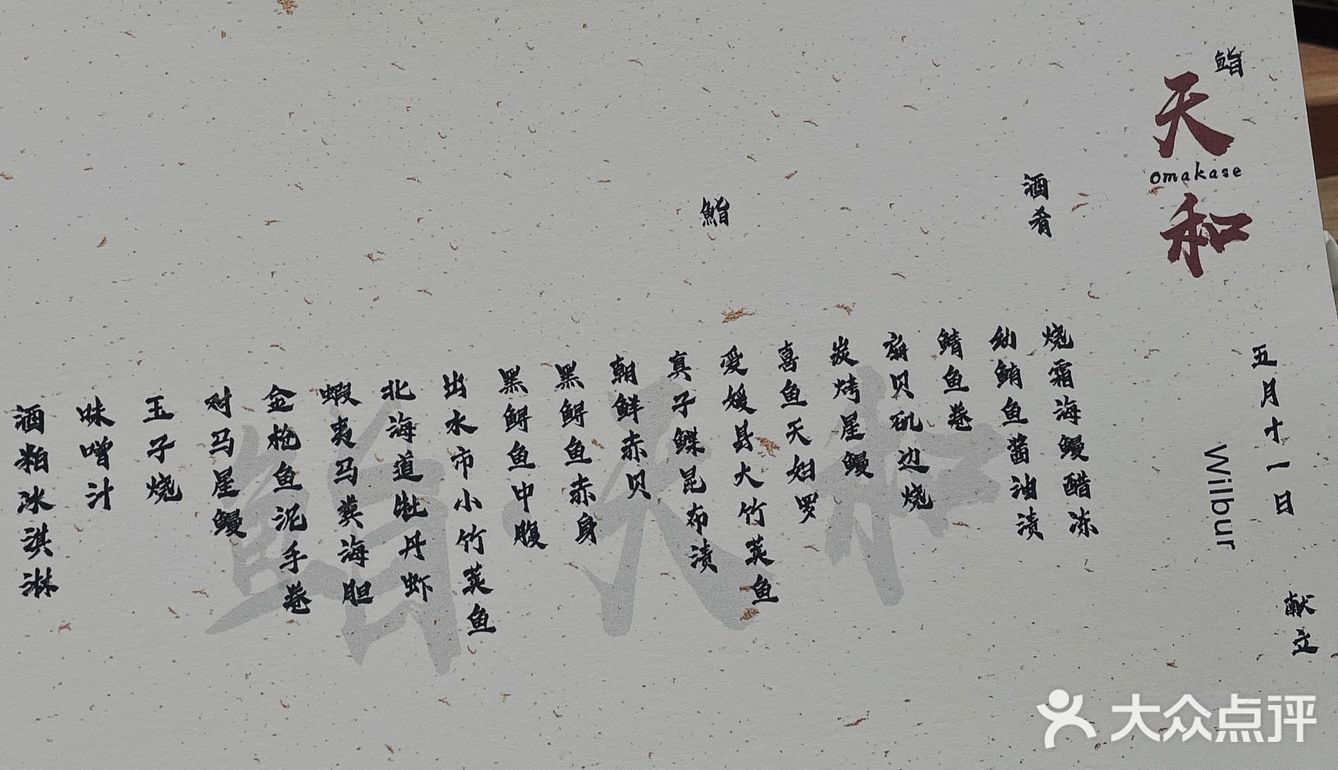 鮨
天
omakase
和
五月十一日
献立
Wilbur
酒肴
烧霜海鳗醋冻
幼鲔鱼酱油渍
鲭鱼卷
扇贝矶边烧
炭烤星鳗
喜鱼天妇罗
鮨
爱媛县大竹荚鱼
真子鲽昆布渍
朝鲜赤贝
黑鲟鱼赤身
黑鲟鱼中腹
出水市小竹荚鱼
北海道牡丹虾
虾夷马粪海胆
金枪鱼泥手卷
对马星鳗
玉子烧
味噌汁
酒粕冰淇淋
鮨天和
大众点评